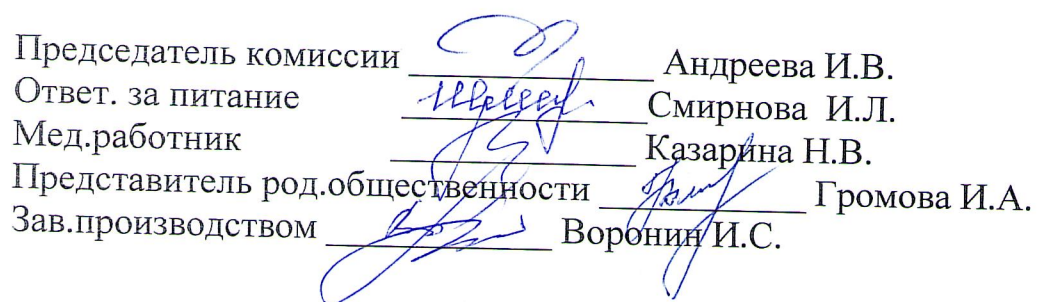 Председатель комиссии ______________ Андреева И.В.
Ответ. за питание ______________Смирнова И.Л.
Мед.работник ______________ Казарина Н.В.
Представитель род.общественности ____________ Громова И.А.
Зав.производством _____________ Воронин И.С.